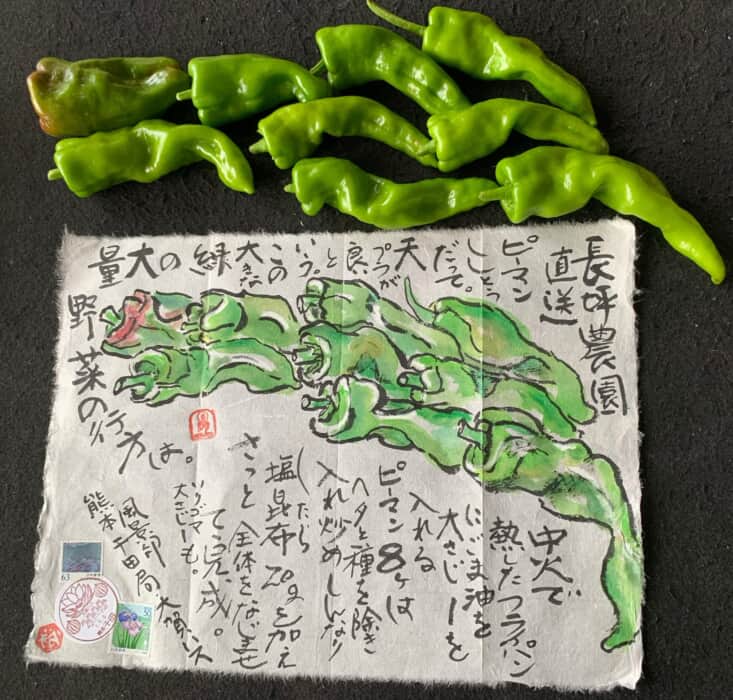 長坪農園
直送
ピーマン
ししとう
だって。
天
プラが
良い
と
いう。
この
大きな
緑
の
大
量
野菜の行方は。
中火で
熱したフライパン
にごま油を
大さじ1を
入れる
ピーマン8ケは
ヘタと種を除き
入れ炒めしんなり
したら
塩昆布20gを加え
さっと全体をなじませ
て完成。
大さじ一も。
熊本
63
35